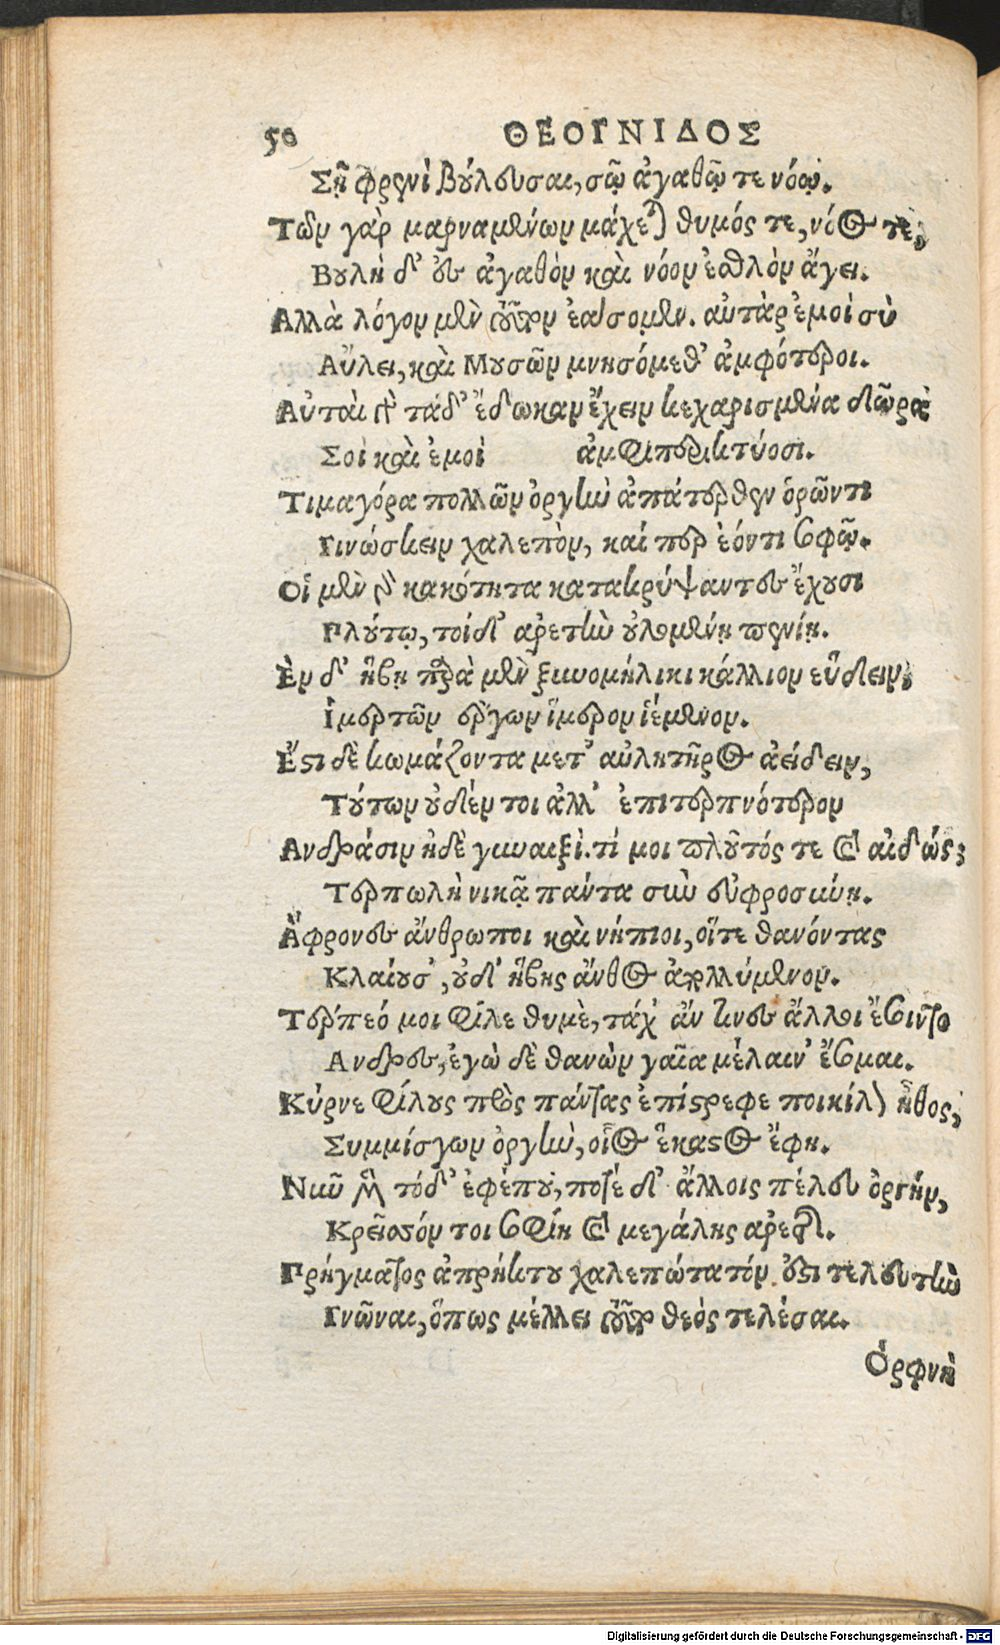 50 ΘΕΟΓΝΙΔΟΣ
Σῇ φρενὶ βούλευσαι, σῷ ἀγαθῷ τε νόῳ.
Τῶν γὰρ μαρναμένων μάχεται θυμός τε, νόος τε,
Βουλὴ δ' εἰς ἀγαθὸν καὶ νόον ἐσθλὸν ἄγει.
Ἀλλὰ λόγον μὲν τοῦτον ἐάσομεν. αὐτὰρ ἐμοὶ σὺ
Αὔλει, καὶ Μουσῶν μνησόμεθ' ἀμφότεροι.
Αὐταὶ γὰρ τάδ' ἔδωκαν ἔχειν κεχαρισμένα δῶρα
Σοὶ καὶ ἐμοὶ ἀμφιπερικτύοσι.
Τιμαγόρα πολλῶν ὀργὴν ἀπάτερθεν ὁρῶντι
Γινώσκειν χαλεπὸν, καί περ ἐόντι σοφῷ.
Οἱ μὲν γὰρ κακότητα κατακρύψαντες ἔχουσι
Πλούτῳ, τοὶ δ' ἀρετὴν οὐλομένῃ πενίῃ.
Ἐν δ' ἥβῃ παρὰ μὲν ξυνομήλικι κάλλιον εὕδειν,
Ἱμερτῶν ἔργων ἵμερον ἱέμενον.
Ἔστι δὲ κωμάζοντα μετ' αὐλητῆρος ἀείδειν,
Τούτων οὐδέν τοι ἀλλ' ἐπιτερπνότερον
Ἀνδράσιν ἠδὲ γυναιξὶ. τί μοι πλοῦτός τε καὶ αἰδώς;
Τερπωλὴ νικᾷ πάντα σὺν εὐφροσύνῃ.
Ἄφρονες ἄνθρωποι καὶ νήπιοι, οἵτε θανόντας
Κλαίουσ', οὐδ' ἥβης ἄνθος ἀπολλύμενον.
Τέρπεό μοι φίλε θυμὲ, τάχ' ἄν τινες ἄλλοι ἔσονται
Ἄνδρες, ἐγὼ δὲ θανὼν γαῖα μέλαιν' ἔσομαι.
Κύρνε φίλους πρὸς πάντας ἐπίστρεφε ποικίλον ἦθος,
Συμμίσγων ὀργὴν, οἷος ἕκαστος ἔφη.
Νῦν μὲν τόδ' ἐφέπου, ποτὲ δ' ἄλλοις πέλευ ὀργήν,
Κρεῖσσόν τοι σοφίη καὶ μεγάλης ἀρετῆς.
Πρήγματος ἀπρήκτου χαλεπώτατόν ἐστι τελευτὴν
Γνῶναι, ὅπως μέλλει τοῦτο θεὸς τελέσαι.
Ὀρφνὴ
Digitalisierung gefördert durch die Deutsche Forschungsgemeinschaft - DFG